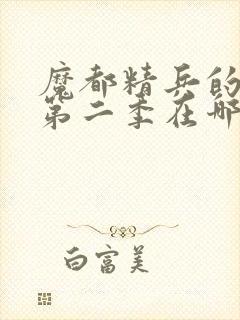 魔都精兵的
第二季在哪
白富美